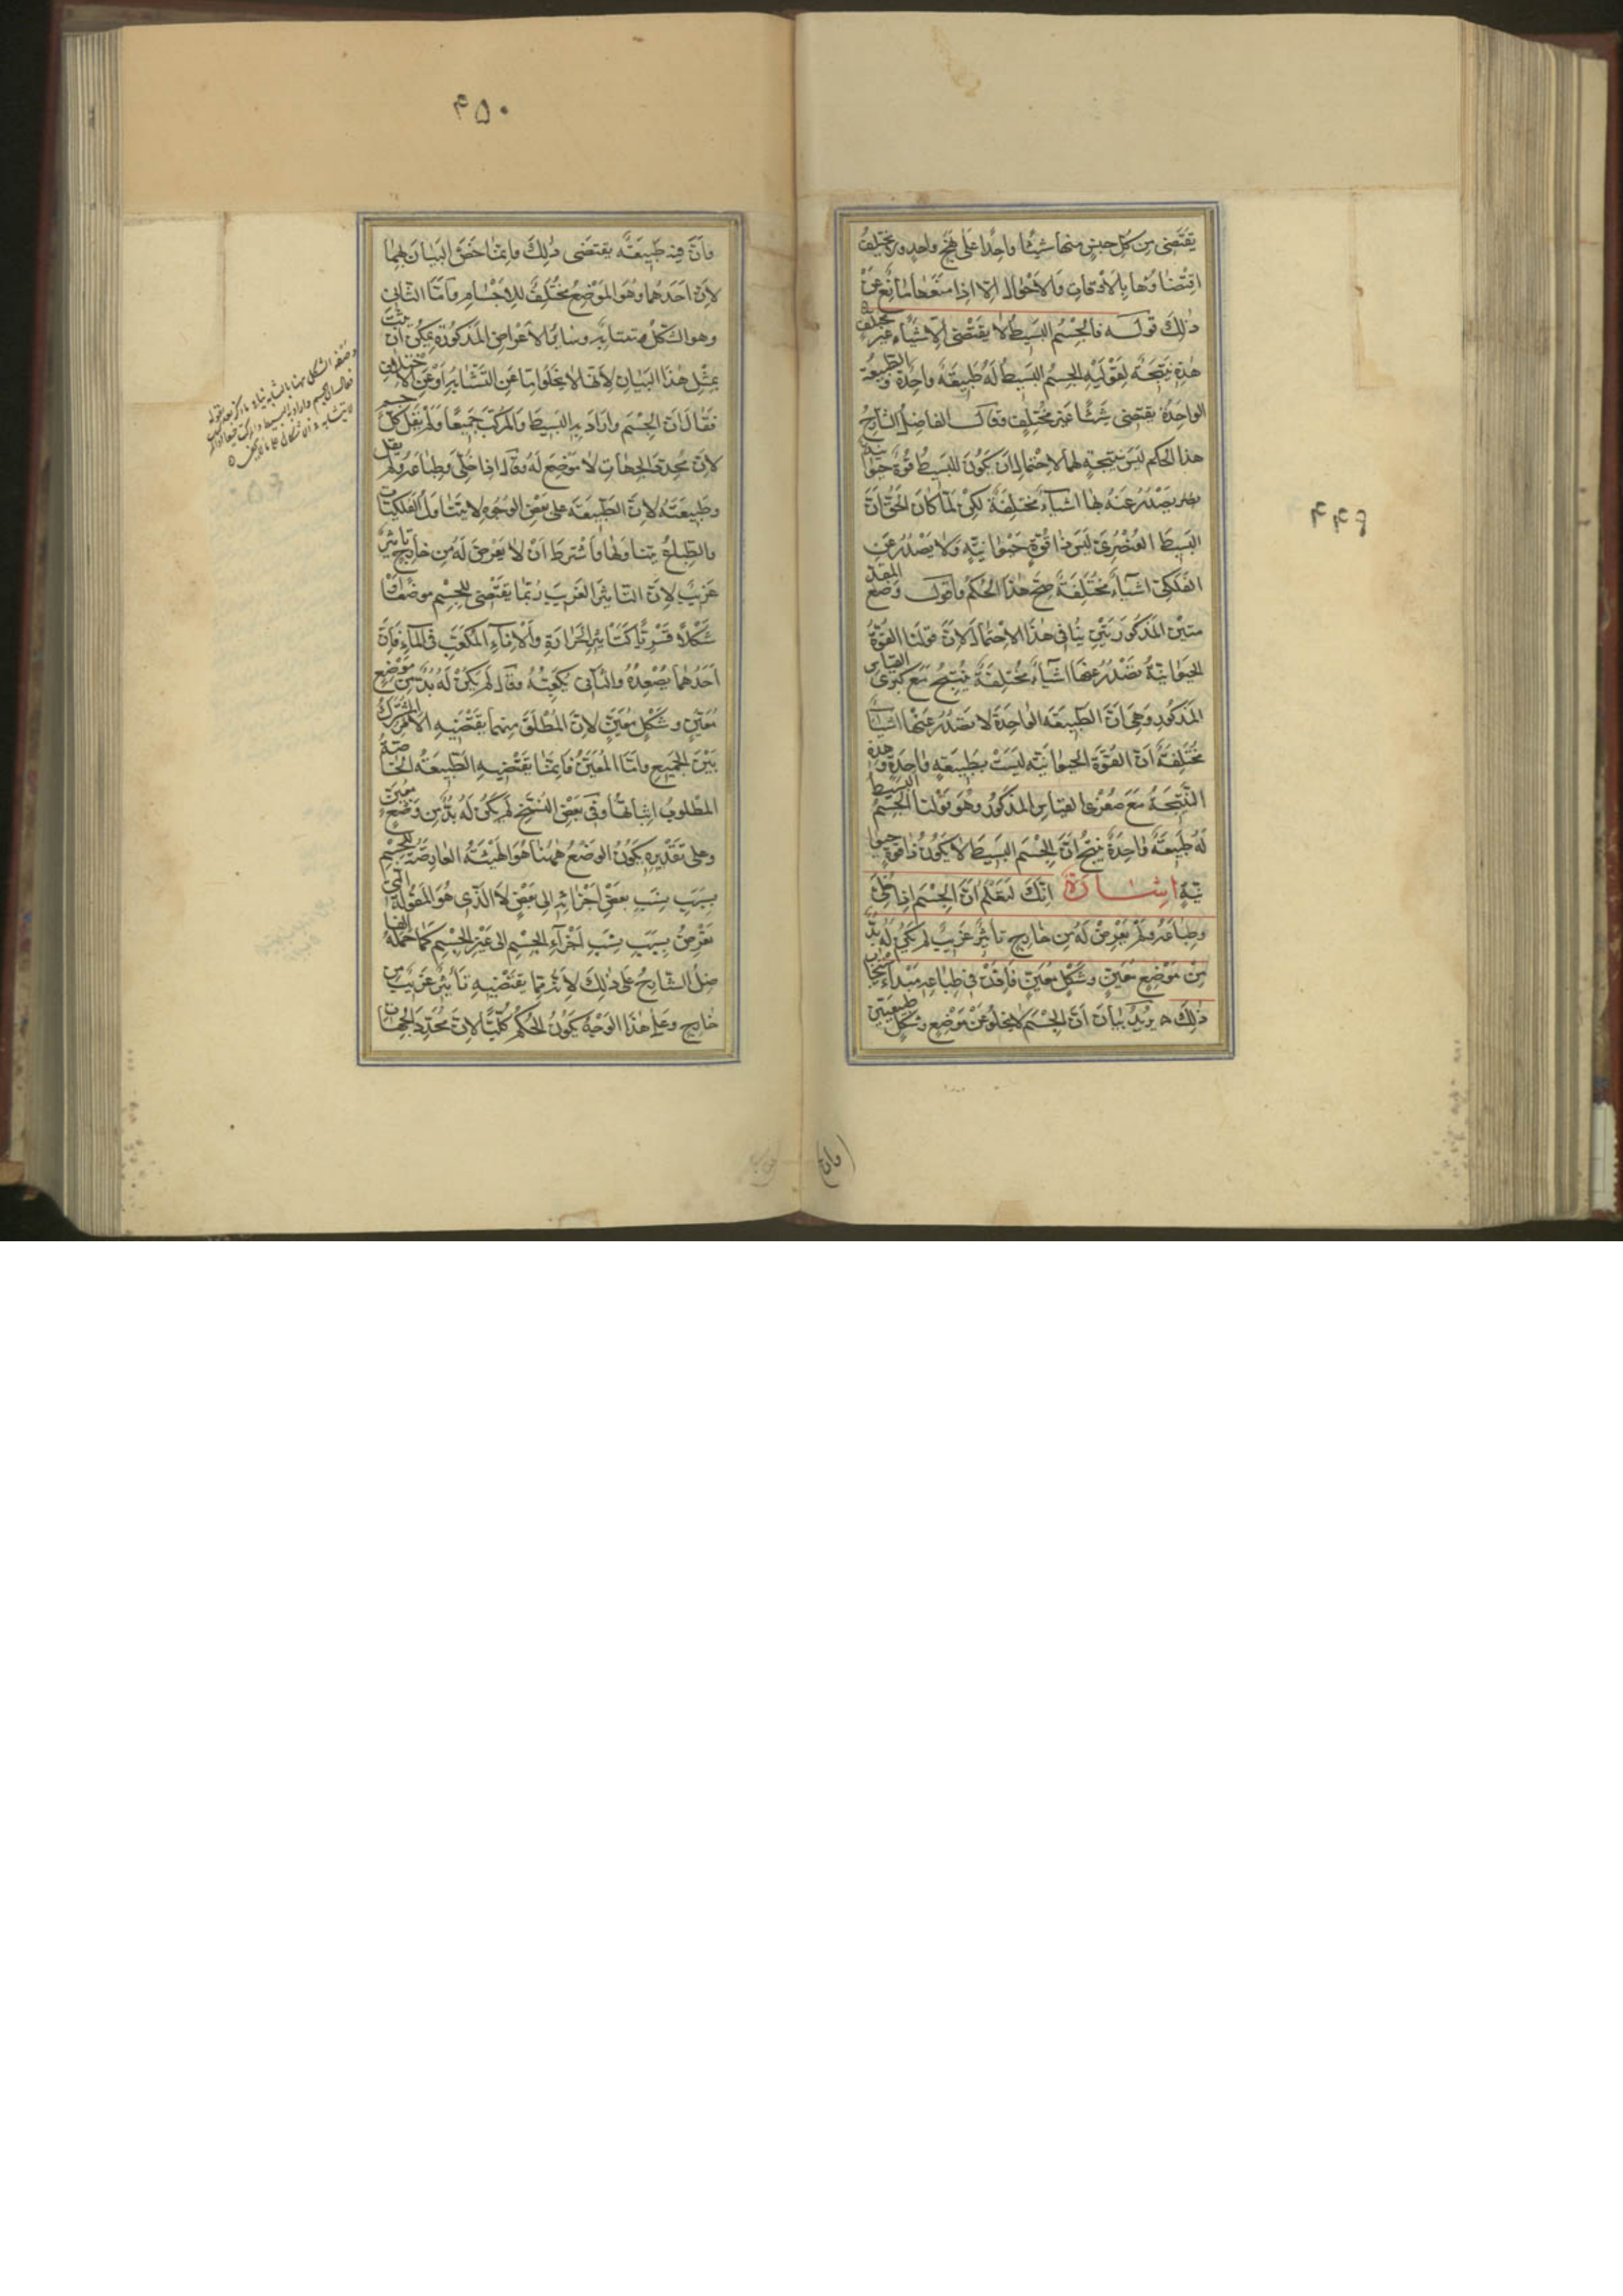 يقتضى من كل جنس منها شيئا واحدا على نهج واحد ولا يختلف
اقتضاؤها بالاوقات والاحوال الا اذا منعها مانع عن
ذلك قوله فالجسم البسيط لا يقتضى الا شيئا غير مختلف
هذه نتيجة لقوليه الجسم البسيط له طبيعة واحدة و الطبيعة
الواحدة يقتضى شيئا غير مختلف وقال الفاضل الشارح
هذا الحكم ليس نتيجة لهما لاحتمال ان يكون للبسيط قوة حيوا
نية يصدر عنه بها اشياء مختلفة لكن لما كان الحق ان
البسيط العنصرى ليس ذا قوة حيوانية ولا يصدر عن
الفلكى اشياء مختلفة صح هذا الحكم واقول وضع المقد
متين المذكورتين ينافى هذا الاحتمال لان قولنا القوة
الحيوانية تصدر عنها اشياء مختلفة ينتج مع كبرى القياس
المذكور وهى ان الطبيعة الواحدة لا تصدر عنها اشياء
مختلفة ان القوة الحيوانية ليست بطبيعة واحدة وهذه
النتيجة مع صغرى القياس المذكور وهو قولنا الجسم البسيط
له طبيعة واحدة ينتج ان الجسم البسيط لا يكون ذا قوة حيوا
نية اشارة انك لتعلم ان الجسم اذا خلى
وطباعه ولم يعرض له من خارج تاثير غريب لم يكن له بد
من موضع معين وشكل معين فاذن فى طباعه مبدا استيجاب
ذلك ه يريد بيان ان الجسم لا يخلو عن موضع وشكل طبيعيين
وان
۴۵۰
وان فيه طبيعة يقتضى ذلك وانما خص البيان بهما
لان احدهما وهو الموضع مختلف للاجسام واما الثانى
وهو الشكل متشابه وسائر الاعراض المذكورة يمكن ان يثبت
بمثل هذا البيان لانها لا يخلوا اما عن التشابه او عن الاختلاف
فقال ان الجسم واراد به البسيط والمركب جميعا ولم يقل كل جسم
لان محدد الجهات لا موضع له وقال اذا خلى وطباعه ولم يقل
وطبيعته لان الطبيعة على بعض الوجوه لا يتناول الفلكيات
والطباع يتناولها واشترط ان لا يعرض له من خارج تاثير
غريب لان التاثير الغريب ربما يقتضى للجسم موضعا او
شكلا قسريا كتاثير الحرارة والاناء المكعب فى الماء فان
احدهما يصعده والثانى يكعبه وقال لم يكن له بد من موضع
معين وشكل معين لان المطلق منهما يقتضيه الامر المشترك
بين الجميع واما المعين فانما يقتضيه الطبيعة الخاصة
المطلوب اثباتها وفى بعض النسخ لم يكن له بد من وضع معين
وعلى تقديره يكون الوضع ههنا هو الهيئة العارضة للجسم
بسبب نسب بعض اجزائه الى بعض لا الذى هو المقولة التى
تعرض بسبب نسب اجزاء الجسم الى غير الجسم كما حمله الفا
ضل الشارح على ذلك لانه مما يقتضيه تاثير غريب من
خارج وعلى هذا الوجه يكون الحكم كليا لان محدد الجهات